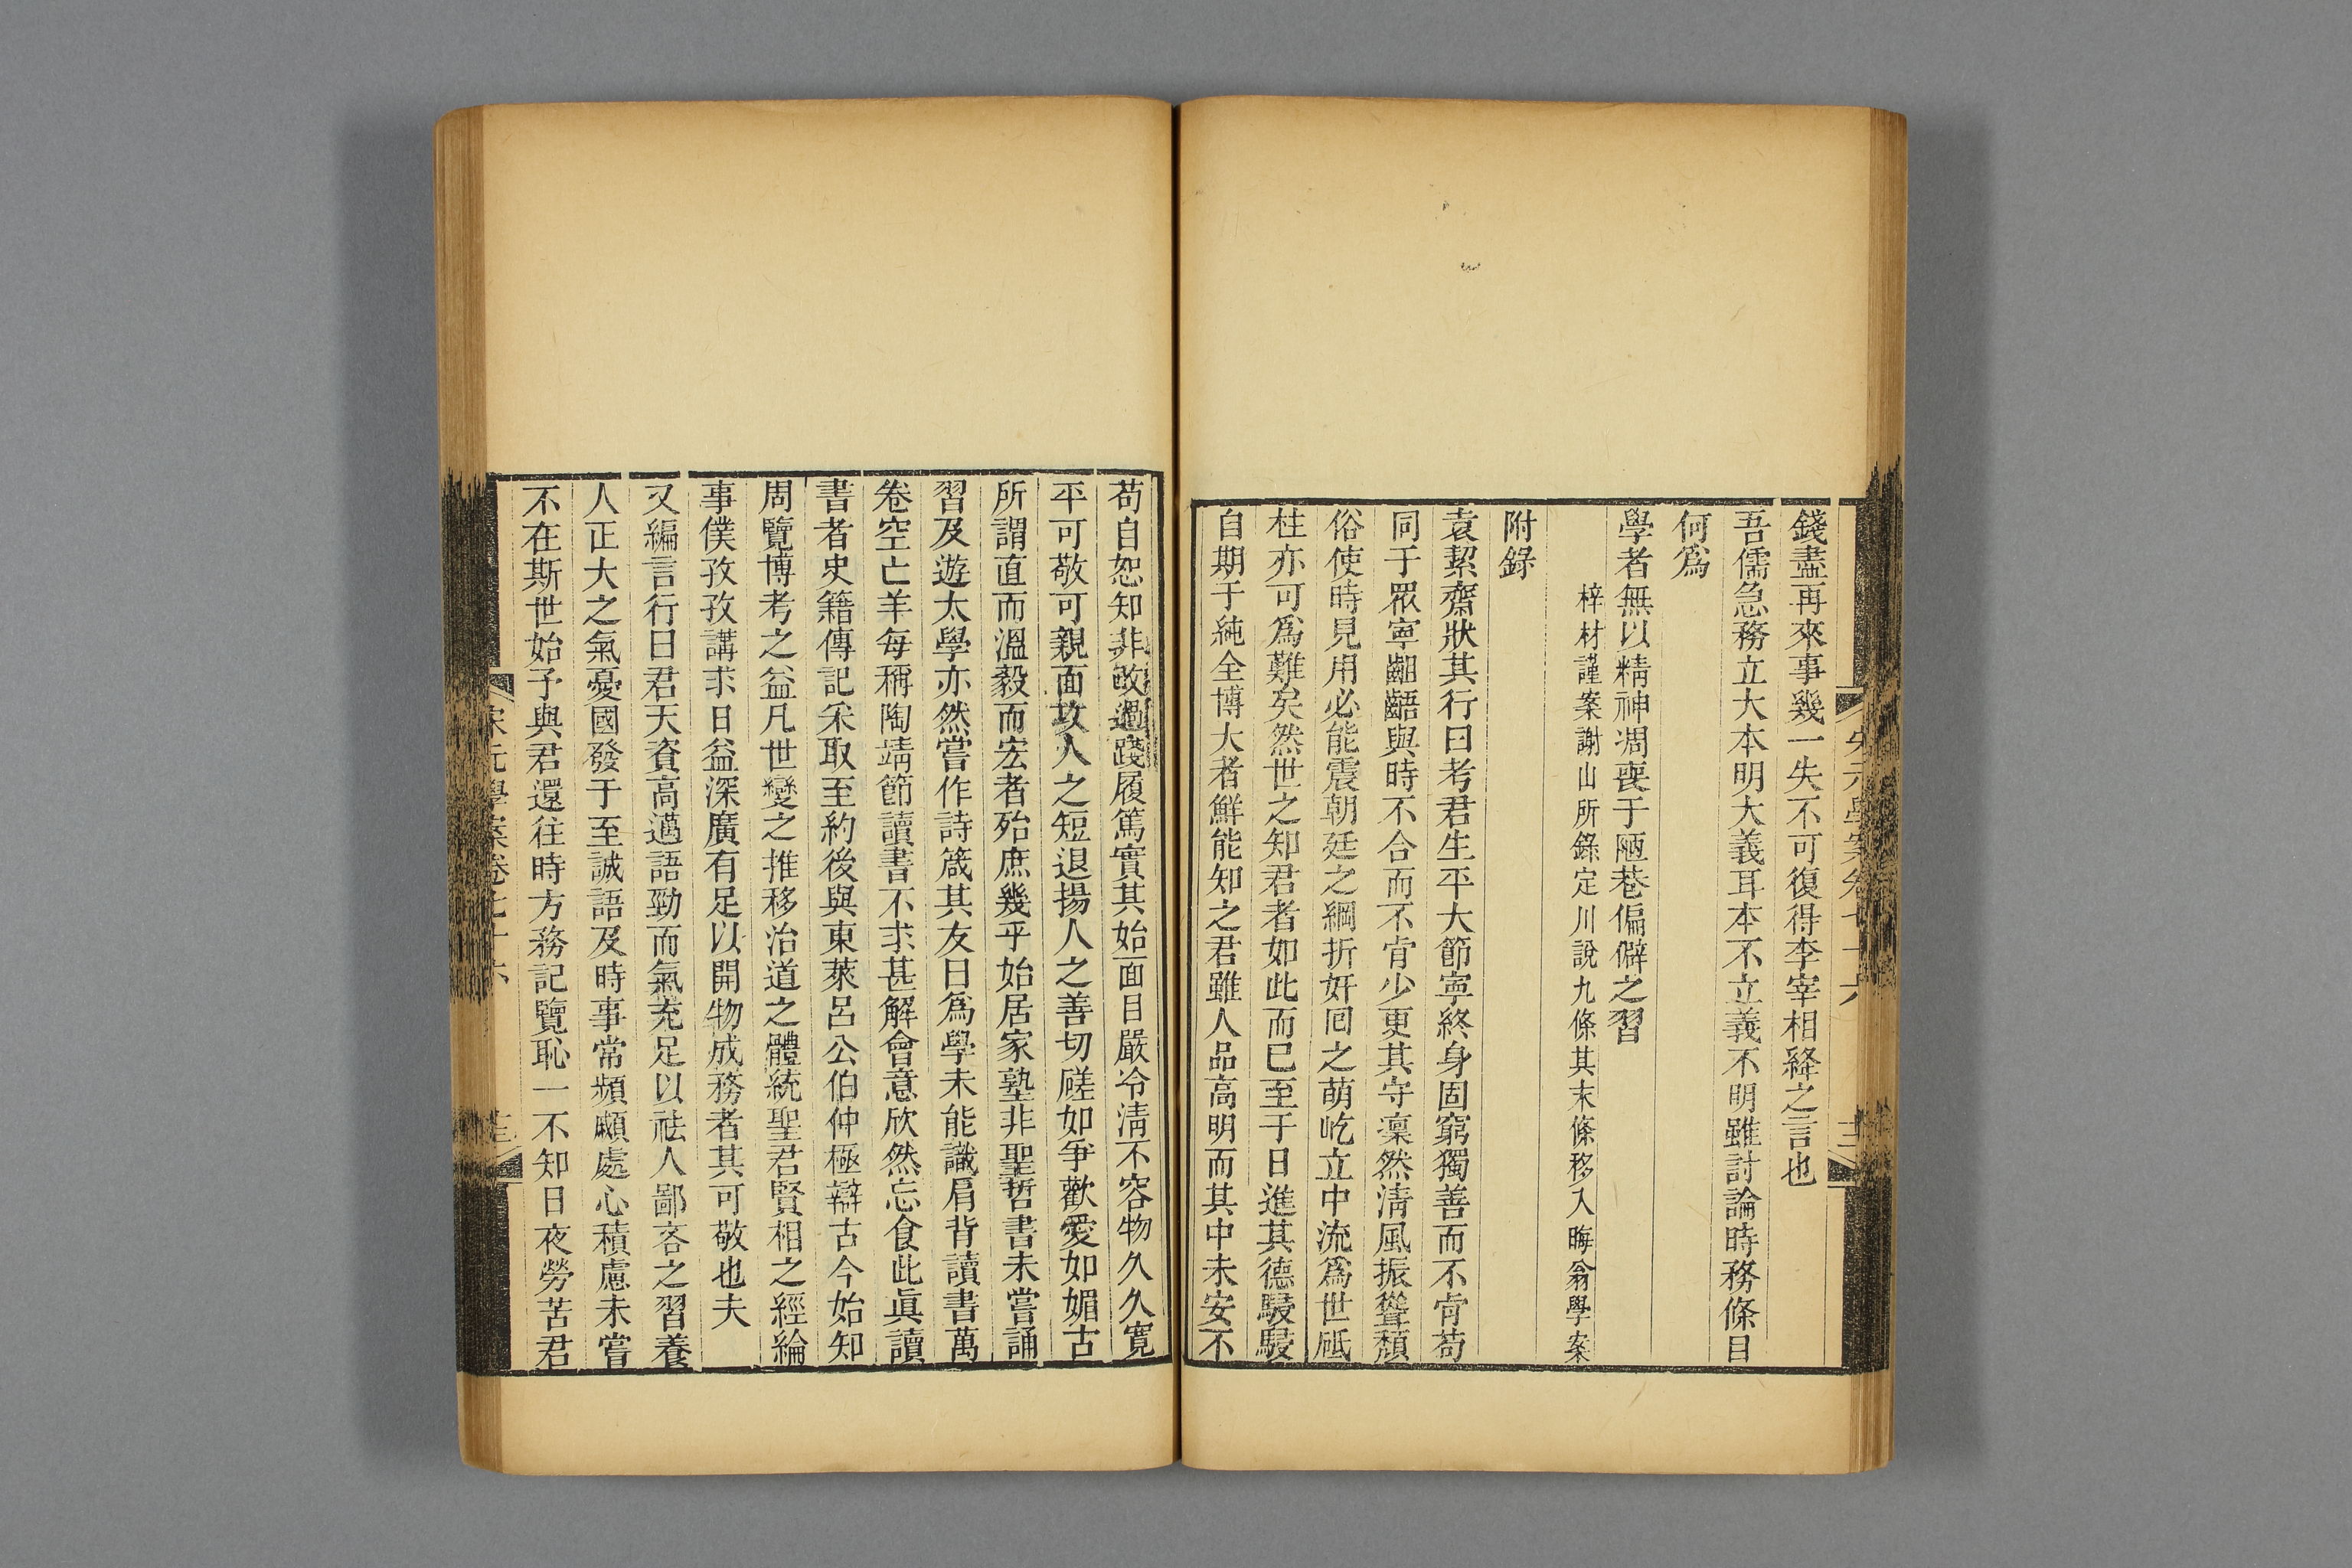 錢盡再來事幾一失不可復得李宰相絳之言也
吾儒急務立大本明大義耳本不立義不明雖討論時務條目
何爲
學者無以精神凋喪于陋巷偏僻之習
梓材謹案謝山所錄定川說九條其末條移入晦翁學案
附錄
袁絜齋狀其行曰考君生平大節寧終身固窮獨善而不肯苟
同于眾寧齟齬與時不合而不肯少更其守凜然淸風振聳頹
俗使時見用必能震朝廷之綱折奸囘之萌屹立中流爲世砥
柱亦可爲難矣然世之知君者如此而已至于日進其德駸駸
自期于純全博大者鮮能知之君雖人品高明而其中未安不
苟自恕知非改過踐履篤實其始面目嚴冷淸不容物久久寬
平可敬可親面攻人之短退揚人之善切磋如爭歡愛如媚古
所謂直而溫毅而宏者殆庶幾乎始居家塾非聖哲書未嘗誦
習及遊太學亦然嘗作詩箴其友曰爲學未能識肩背讀書萬
卷空亡羊每稱陶靖節讀書不求甚解會意欣然忘食此眞讀
書者史籍傳記采取至約後與東萊呂公伯仲極辯古今始知
周覽博考之益凡世變之推移治道之體統聖君賢相之經綸
事僕孜孜講求日益深廣有足以開物成務者其可敬也夫
又編言行曰君天資高邁語勁而氣充足以祛人鄙吝之習養
人正大之氣憂國發于至誠語及時事常頻顣處心積慮未嘗
不在斯世始予與君還往時方務記覽恥一不知日夜勞苦君
宋元學案卷七十六